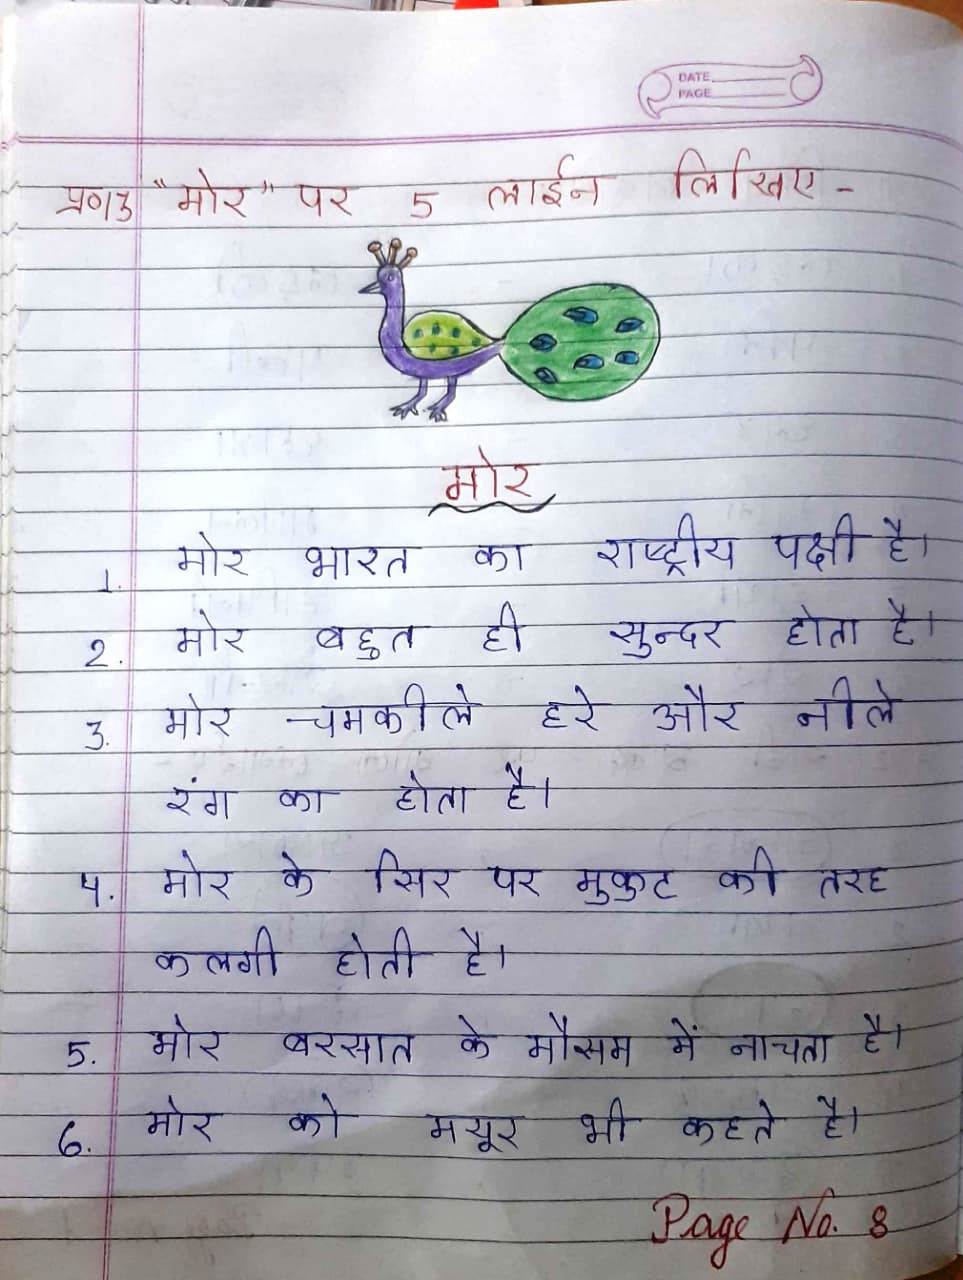 DATE
PAGE
प्र०13 "मोर" पर 5 लाईन लिखिए -
मोर
1. मोर भारत का राष्ट्रीय पक्षी है।
2. मोर बहुत ही सुन्दर होता है।
3. मोर चमकीले हरे और नीले
रंग का होता है।
4. मोर के सिर पर मुकुट की तरह
कलगी होती है।
5. मोर बरसात के मौसम में नाचता है।
6. मोर को मयूर भी कहते है।
Page No. 8